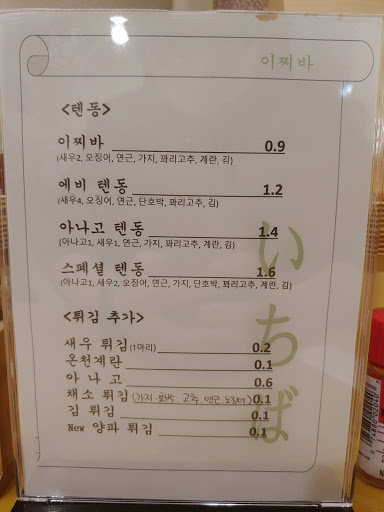 이찌바
<텐동>
이찌바 0.9
(새우2, 오징어, 연근, 가지, 꽈리고추, 계란, 김)
에비 텐동 1.2
(새우4, 오징어, 연근, 단호박, 꽈리고추, 김)
아나고 텐동 1.4
(아나고1, 새우1, 연근, 가지, 꽈리고추, 계란, 김)
스페셜 텐동 1.6
(아나고1, 새우2, 오징어, 연근, 가지, 단호박, 꽈리고추, 계란, 김)
<튀김 추가>
새우 튀김(1마리) 0.2
온천계란 0.1
아 나 고 0.6
채소 튀김 (가지. 호박. 고추. 연근. 오징어) 0.1
김 튀김 0.1
New 양파 튀김 0.1
いちば